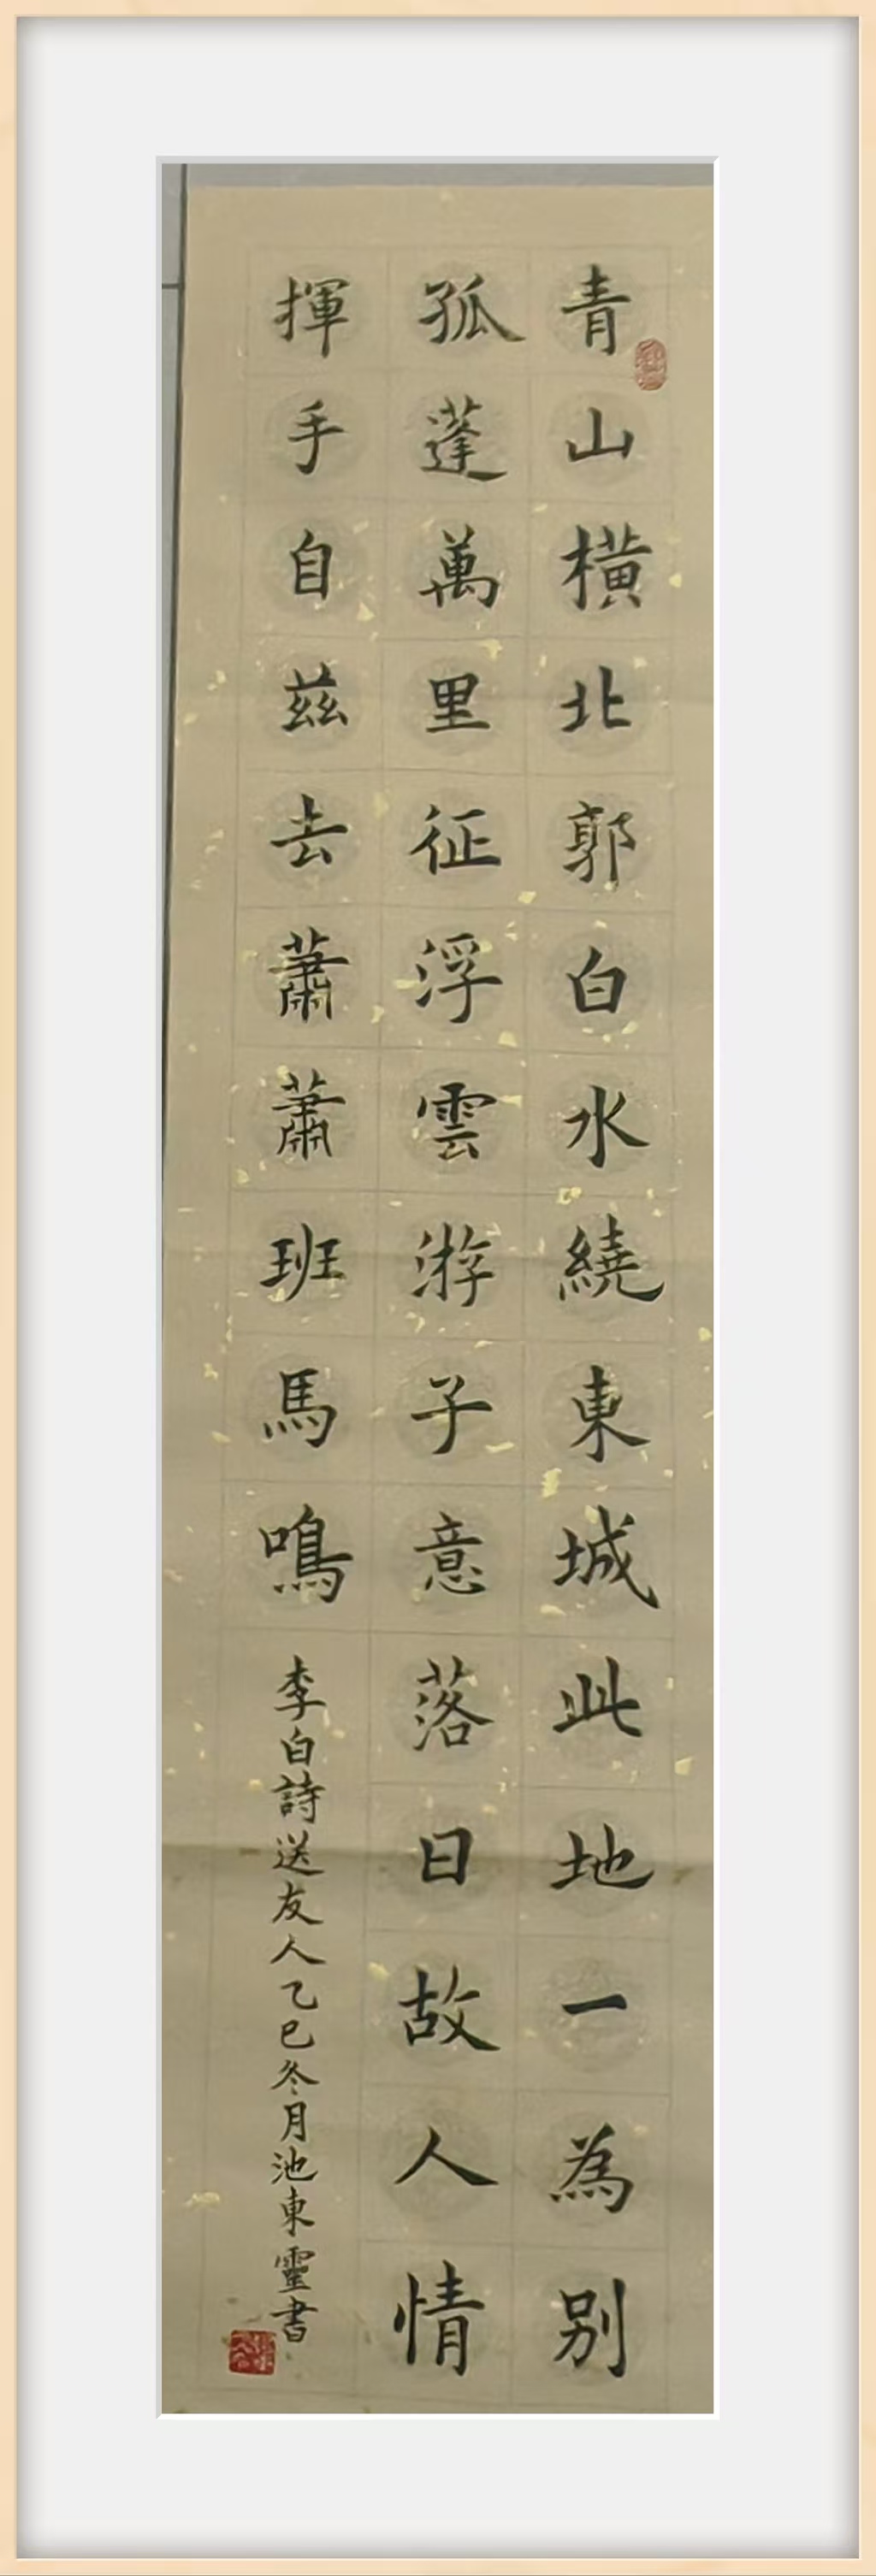 青山橫北郭白水繞東城此地一為别
孤蓬萬里征浮雲游子意落日故人情
揮手自茲去蕭蕭班馬鳴
李白詩送友人乙巳冬月池東靈書